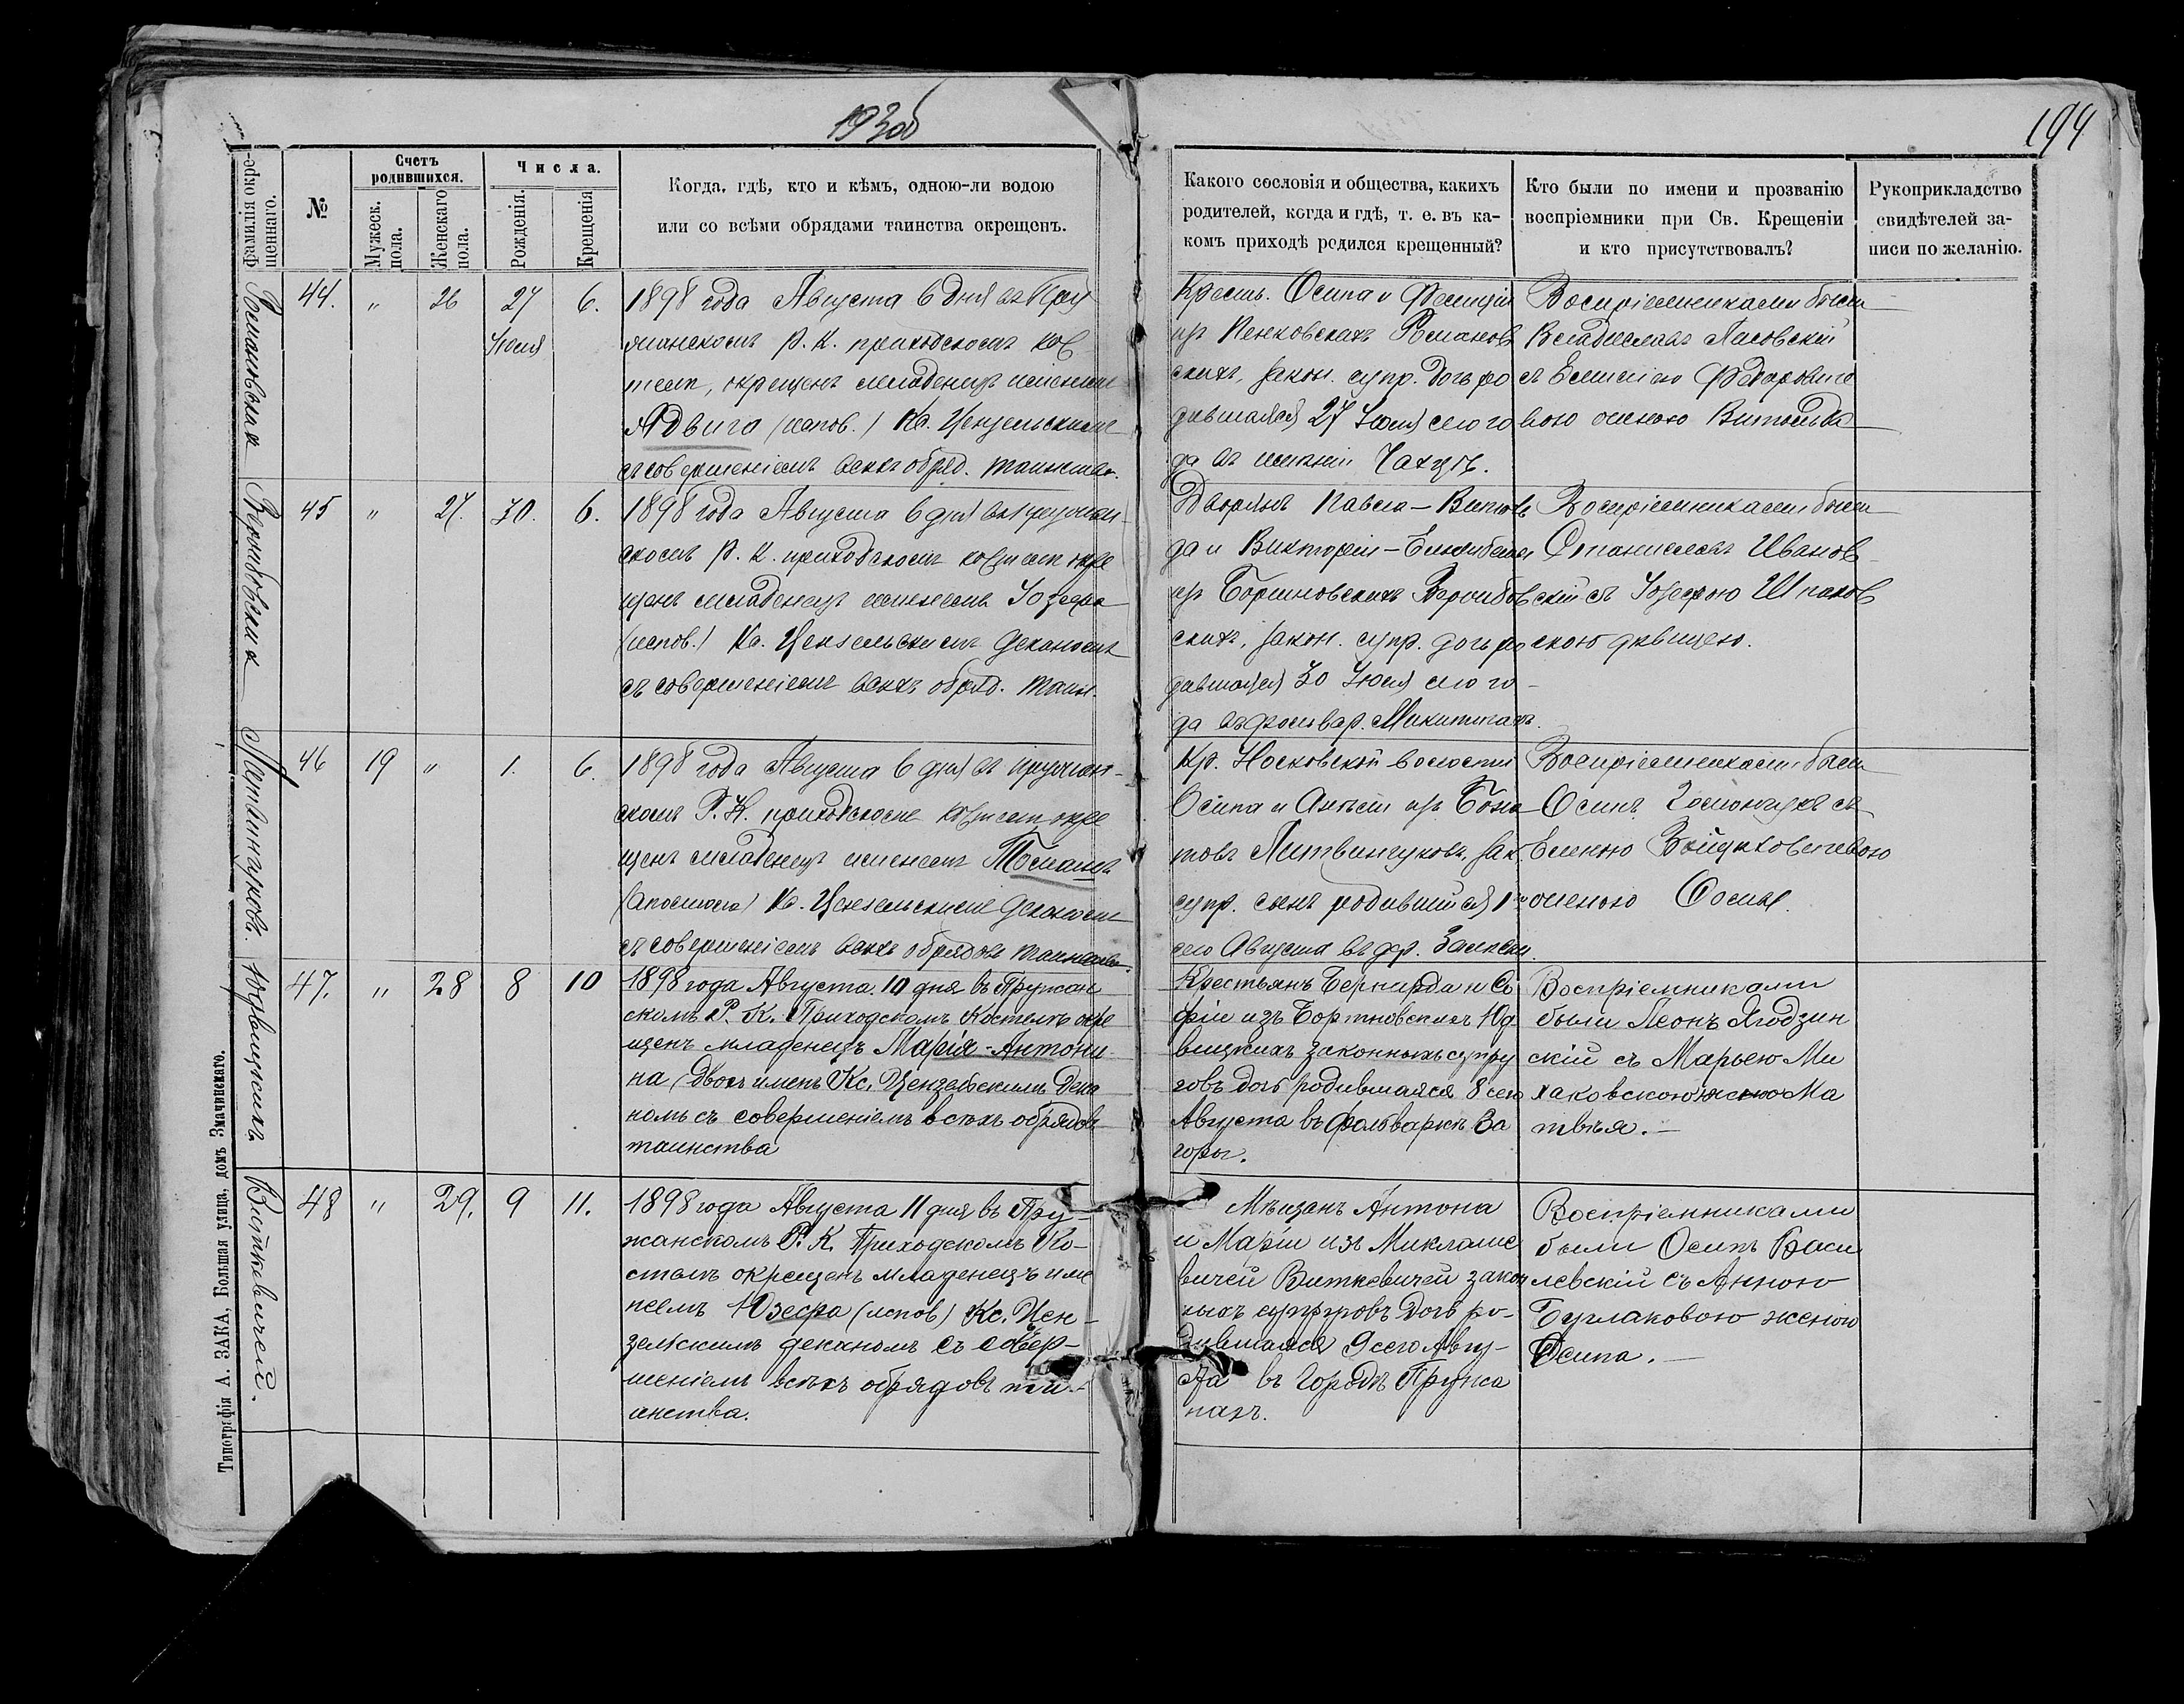 193об
194
Фамилія окре-
щеннаго.
№
Счетъ
родившихся.
Мужеск.
пола.
Женскаго
пола.
Числа.
Рожденія.
Крещенія
Когда, гдѣ, кто и кѣмъ, одною-ли водою
или со всѣми обрядами таинства окрещенъ.
Какого сословія и общества, какихъ
родителей, когда и гдѣ, т. е. въ ка-
комъ приходѣ родился крещенный?
Кто были по имени и прозванію
воспріемники при Св. Крещеніи
и кто присутствовалъ?
Рукоприкладство
свидѣтелей за-
писи по желанію.
Романовская
44. " 26 27 6.
Іюля
1898 года Августа 6 дня въ Пру
жанскомъ Р. К. приходскомъ кос
телѣ, окрещенъ младенецъ именемъ
Ядвига (испов.) Кс. Цензельскимъ
съ совершеніемъ всѣхъ обряд. таинства.
Крест. Осипа и Фелиціи
изъ Пенковскихъ Романов
скихъ, закон. супр. дочь ро
дившаяся 27 Іюля сего го
да въ имѣніи Чахецъ.
Воспріемниками были
Владиславъ Лисовскій
съ Емиліею Федорови
вою женою Витольда
45 " 27. 30. 6.
1898 года Августа 6 дня въ Пружан-
скомъ Р. К. приходскомъ костелѣ окре
щенъ младенецъ именемъ Юзефа
(испов.) Кс. Цензельскимъ Деканомъ
съ совершеніемъ всѣхъ обряд. таин.
Дворянъ Павла-Витоль
да и Викторіи-Елизабеты
изъ Бортновскихъ Вержбов
скихъ, закон. супр. дочь ро
дившаяся 30 Іюля сего го-
да въ фольвар. Микитичахъ.
Воспріемниками были
Станиславъ Иванов-
скій съ Юзефою Шпаков
скою дѣвицею.
Литвинчуковъ.
46 19 " 1. 6.
1898 года Августа 6 дня въ Пружан-
скомъ Р. К. приходскомъ костелѣ окре
щенъ младенецъ именемъ Томашъ
(Апостола) Кс. Цензельскимъ Деканомъ
съ совершеніемъ всѣхъ обрядовъ таинства.
Кр. Носковской волости
Осипа и Анели изъ
товъ Литвинчуковъ, зак.
супр. сынъ родившійся 1го
сего Августа въ дер.
Воспріемниками были
Осипъ съ
Еленою
женою Осипа.
Юдвицкихъ
47. " 28 8 10
1898 года Августа 10 дня въ Пружан
скомъ Р. К. Приходскомъ Костелѣ окре
щенъ младенецъ Марія-Антони-
на (двохъ именъ) Кс. Цензельскимъ Дека
номъ съ совершеніемъ всѣхъ обрядовъ
таинства
Крестьянъ Бернарда и Со
фіи изъ Бортновскихъ Юд
вицкихъ законныхъ супру
говъ дочь родившаяся 8 сего
Августа въ фольваркѣ За
горы.
Воспріемниками
были Леонъ Ягодзин
скій съ Марьею Ми
хаковскою женою Ма
твѣя.
Виткевичей.
48 " 29. 9 11.
1898 года Августа 11 дня въ Пру-
жанскомъ Р. К. Приходскомъ Ко-
стелѣ окрещенъ младенецъ име
немъ Юзефа (испов) Кс. Цен-
зельскимъ деканомъ съ совер-
шеніемъ всѣхъ обрядовъ таи-
нства.
Мѣщанъ Антона
и Маріи изъ Миклаше
вичей Виткевичей закон
ныхъ супруговъ дочь ро-
дившаяся 9 сего Авгу-
ста въ городѣ Пружа
нахъ.
Воспріемниками
были Осипъ Васи
левскій съ Анною
Бурлаковою женою
Осипа.
Типографія А. ЗАКА, Большая улица, домъ Змачинскаго.